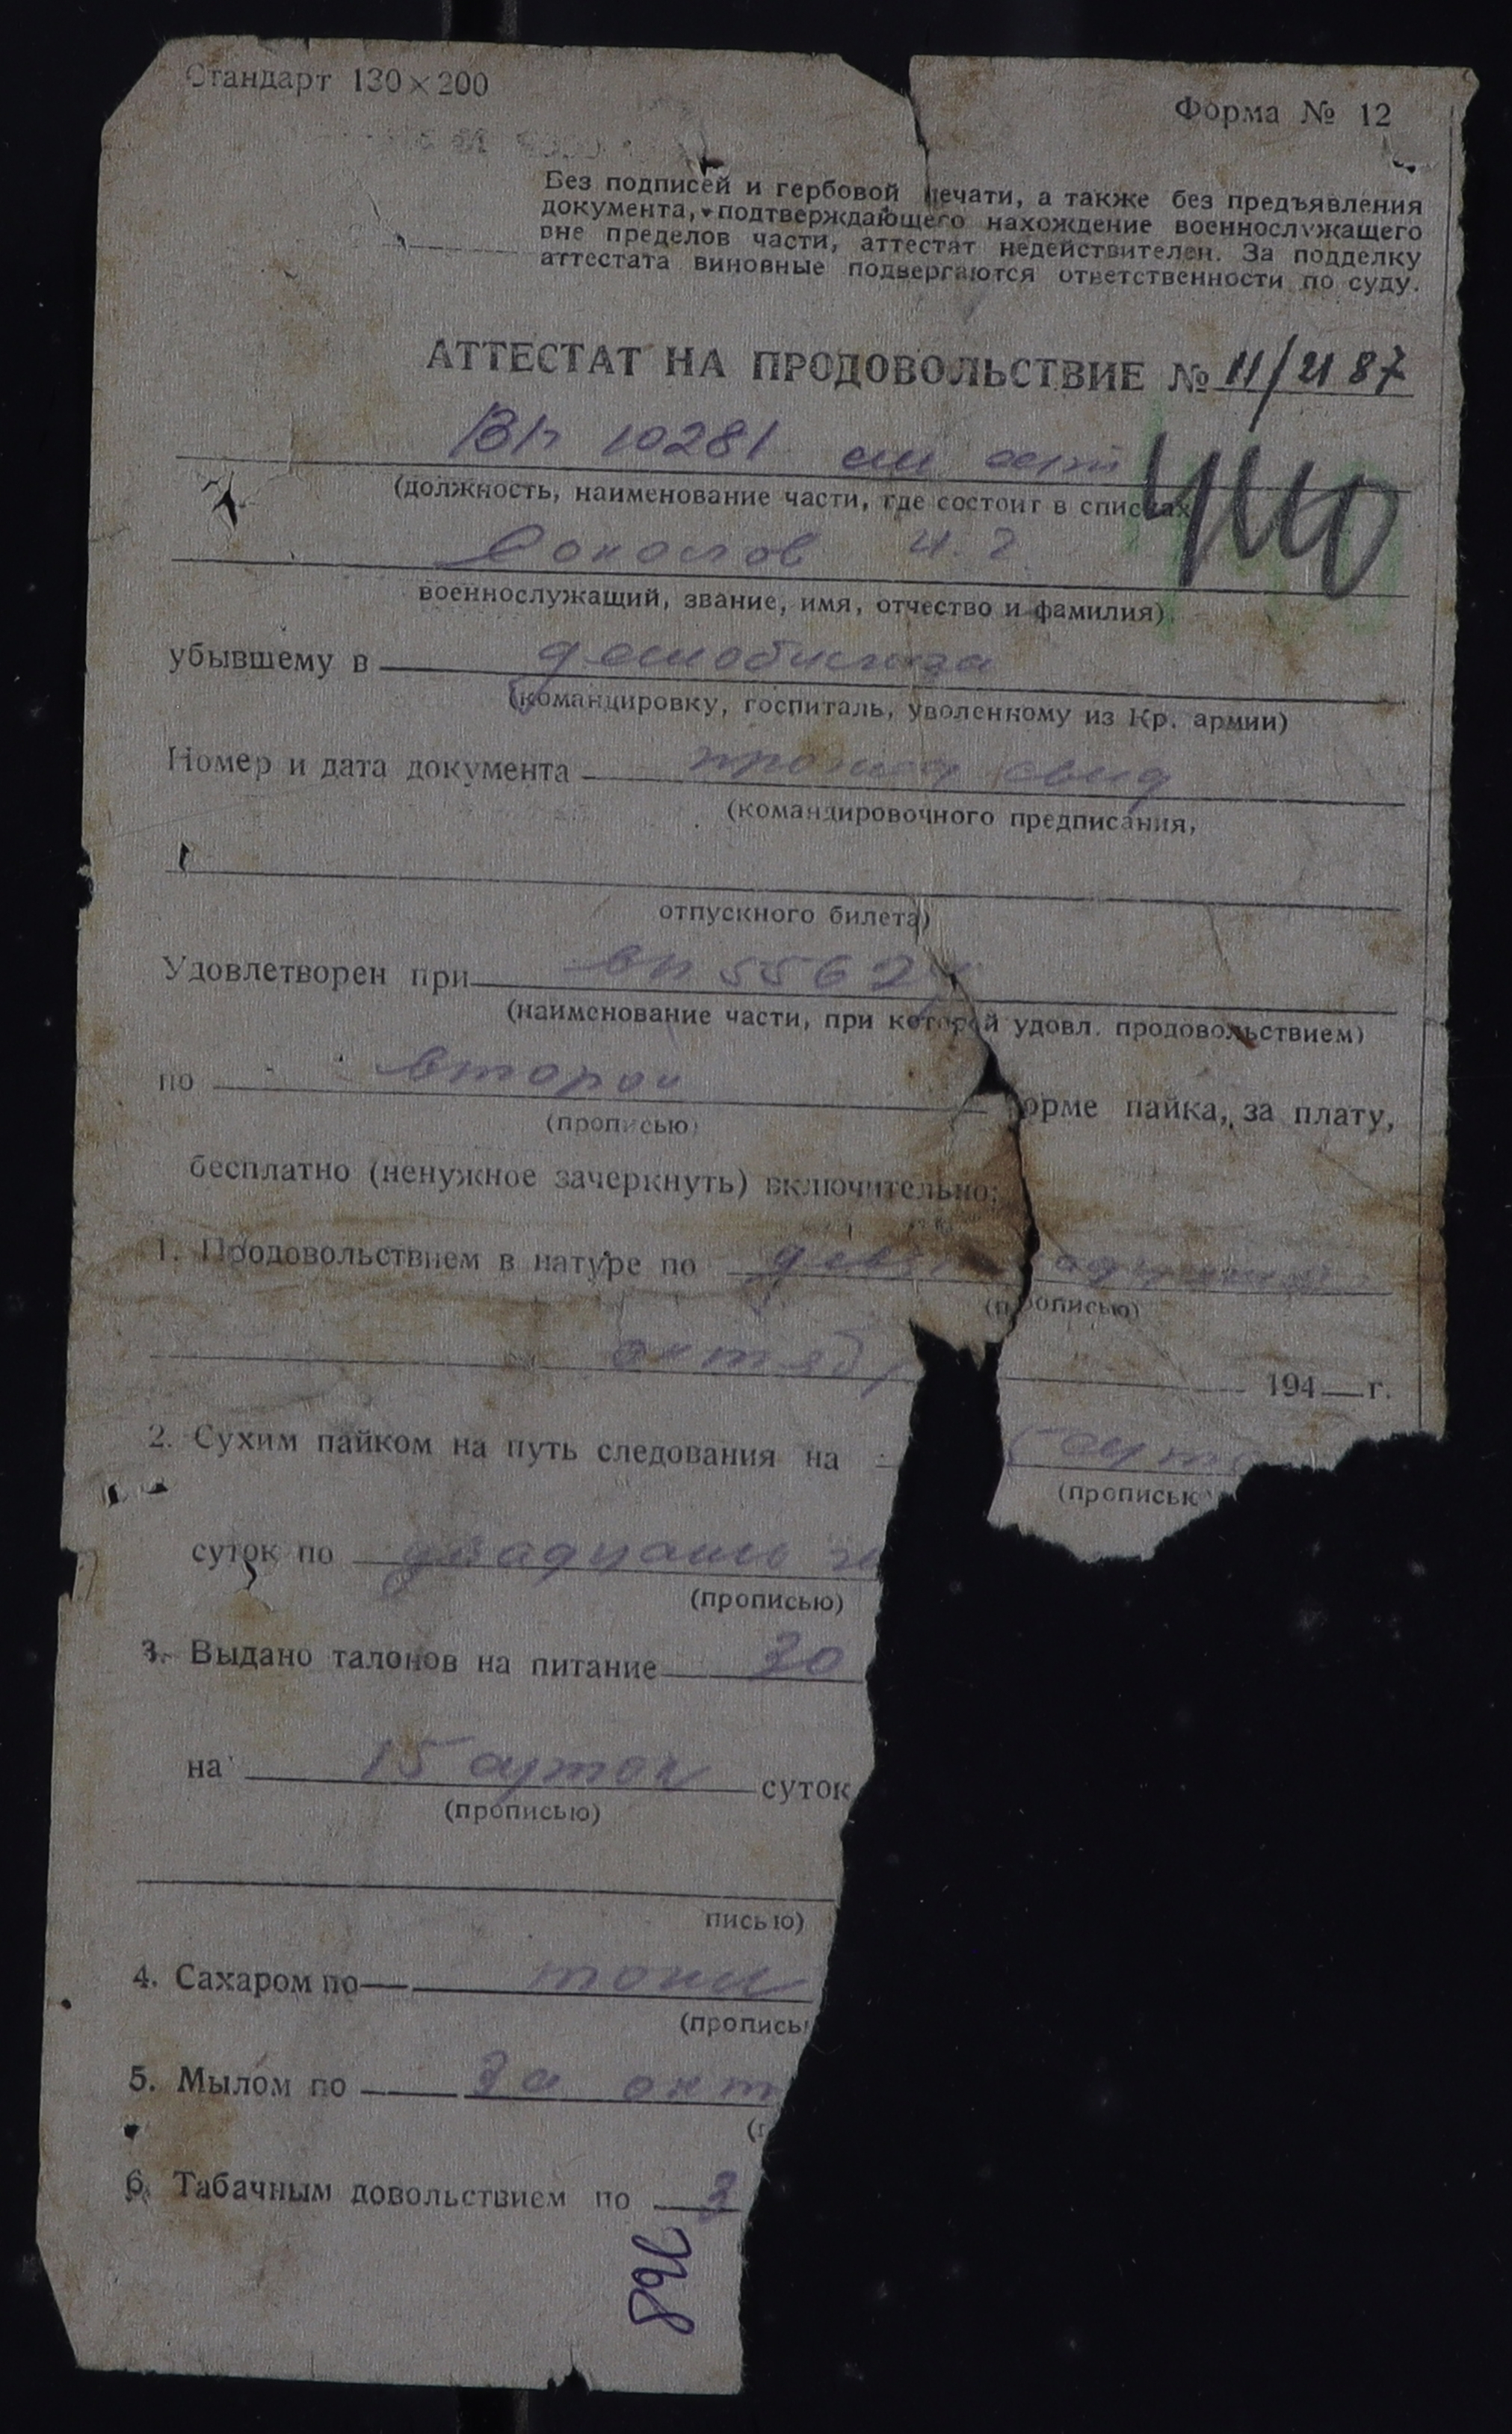 Стандарт 130×200
Форма № 12
Без подписей и гербовой печати, а также без предъявления
документа, подтверждающего нахождение военнослужащего
вне пределов части, аттестат недействителен. За подделку
аттестата виновные подвергаются ответственности по суду.
АТТЕСТАТ НА ПРОДОВОЛЬСТВИЕ № 11/2187
10281
(должность, наименование части, где состоит в списках
Соколов И. Г.
военнослужащий, звание, имя, отчество и фамилия)
убывшему в
(командировку, госпиталь, уволенному из Кр. армии)
Номер и дата документа свид
(командировочного предписания,
отпускного билета)
Удовлетворен при вп
(наименование части, при которой удовл. продовольствием)
по второй орме пайка, за плату,
(прописью)
бесплатно (ненужное зачеркнуть) включительно:
1. Продовольствием в натуре по
(прописью)
октябр 194 г.
2. Сухим пайком на путь следования на
(прописью
суток по двадцать
(прописью)
3. Выдано талонов на питание 30
на 15 суток суток
(прописью)
писью)
4. Сахаром по
(пропись
5. Мылом по за окт
(п
6. Табачным довольствием по З